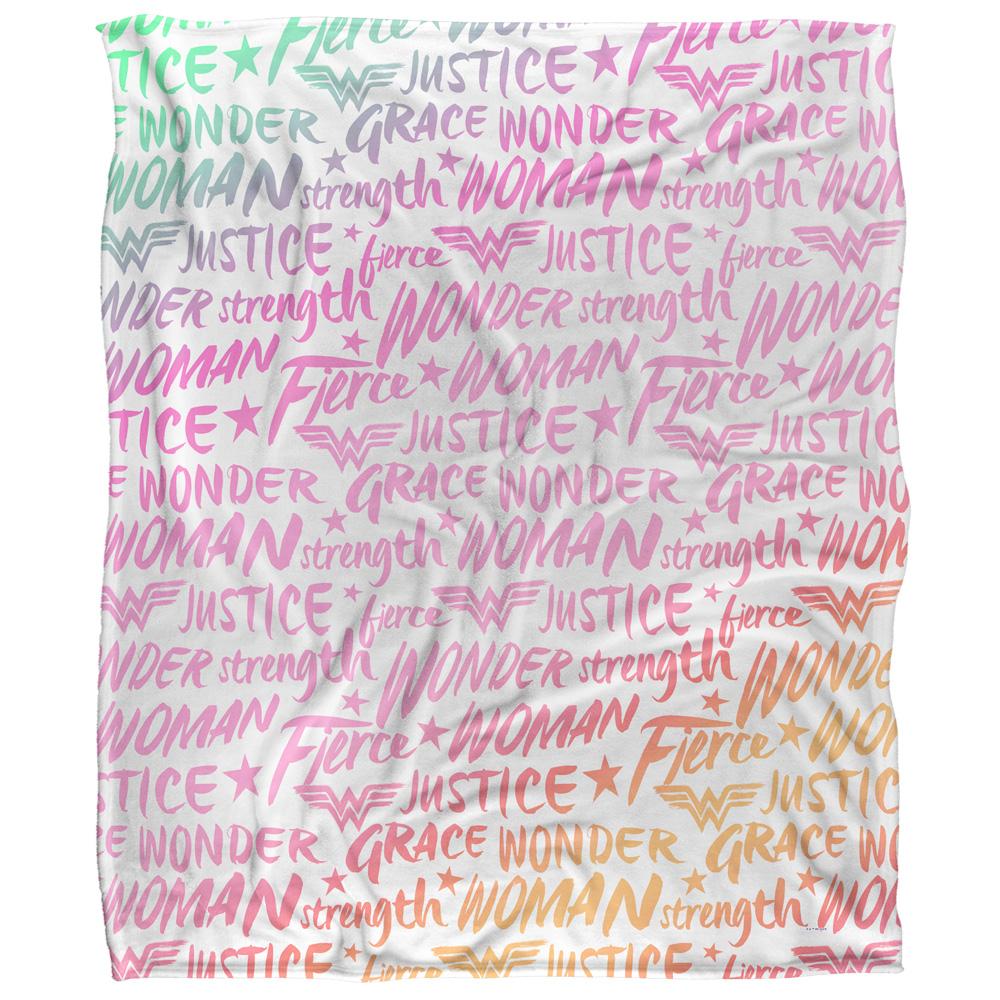 WOMAN Fierce WOMAN Fierce WOM
TICE JUSTICE JUSTIC
E WONDER GRACE WONDER GRACE WO
WOMAN strength WOMAN strength WOM
JUSTICE fierce JUSTICE fierce
NDER strength WONDER strength WONDE
WOMAN Fierce WOMAN Fierce WOM
TICE JUSTICE JUSTIC
E WONDER GRACE WONDER GRACE WO
WOMAN strength WOMAN strength WOM
JUSTICE fierce JUSTICE fierce
NDER strength WONDER strength WONDE
WOMAN Fierce WOMAN Fierce WOM
STICE JUSTICE JUSTIC
E WONDER GRACE WONDER GRACE WO
WOMAN strength WOMAN strength WOM
JUSTICE fierce JUSTICE fierce